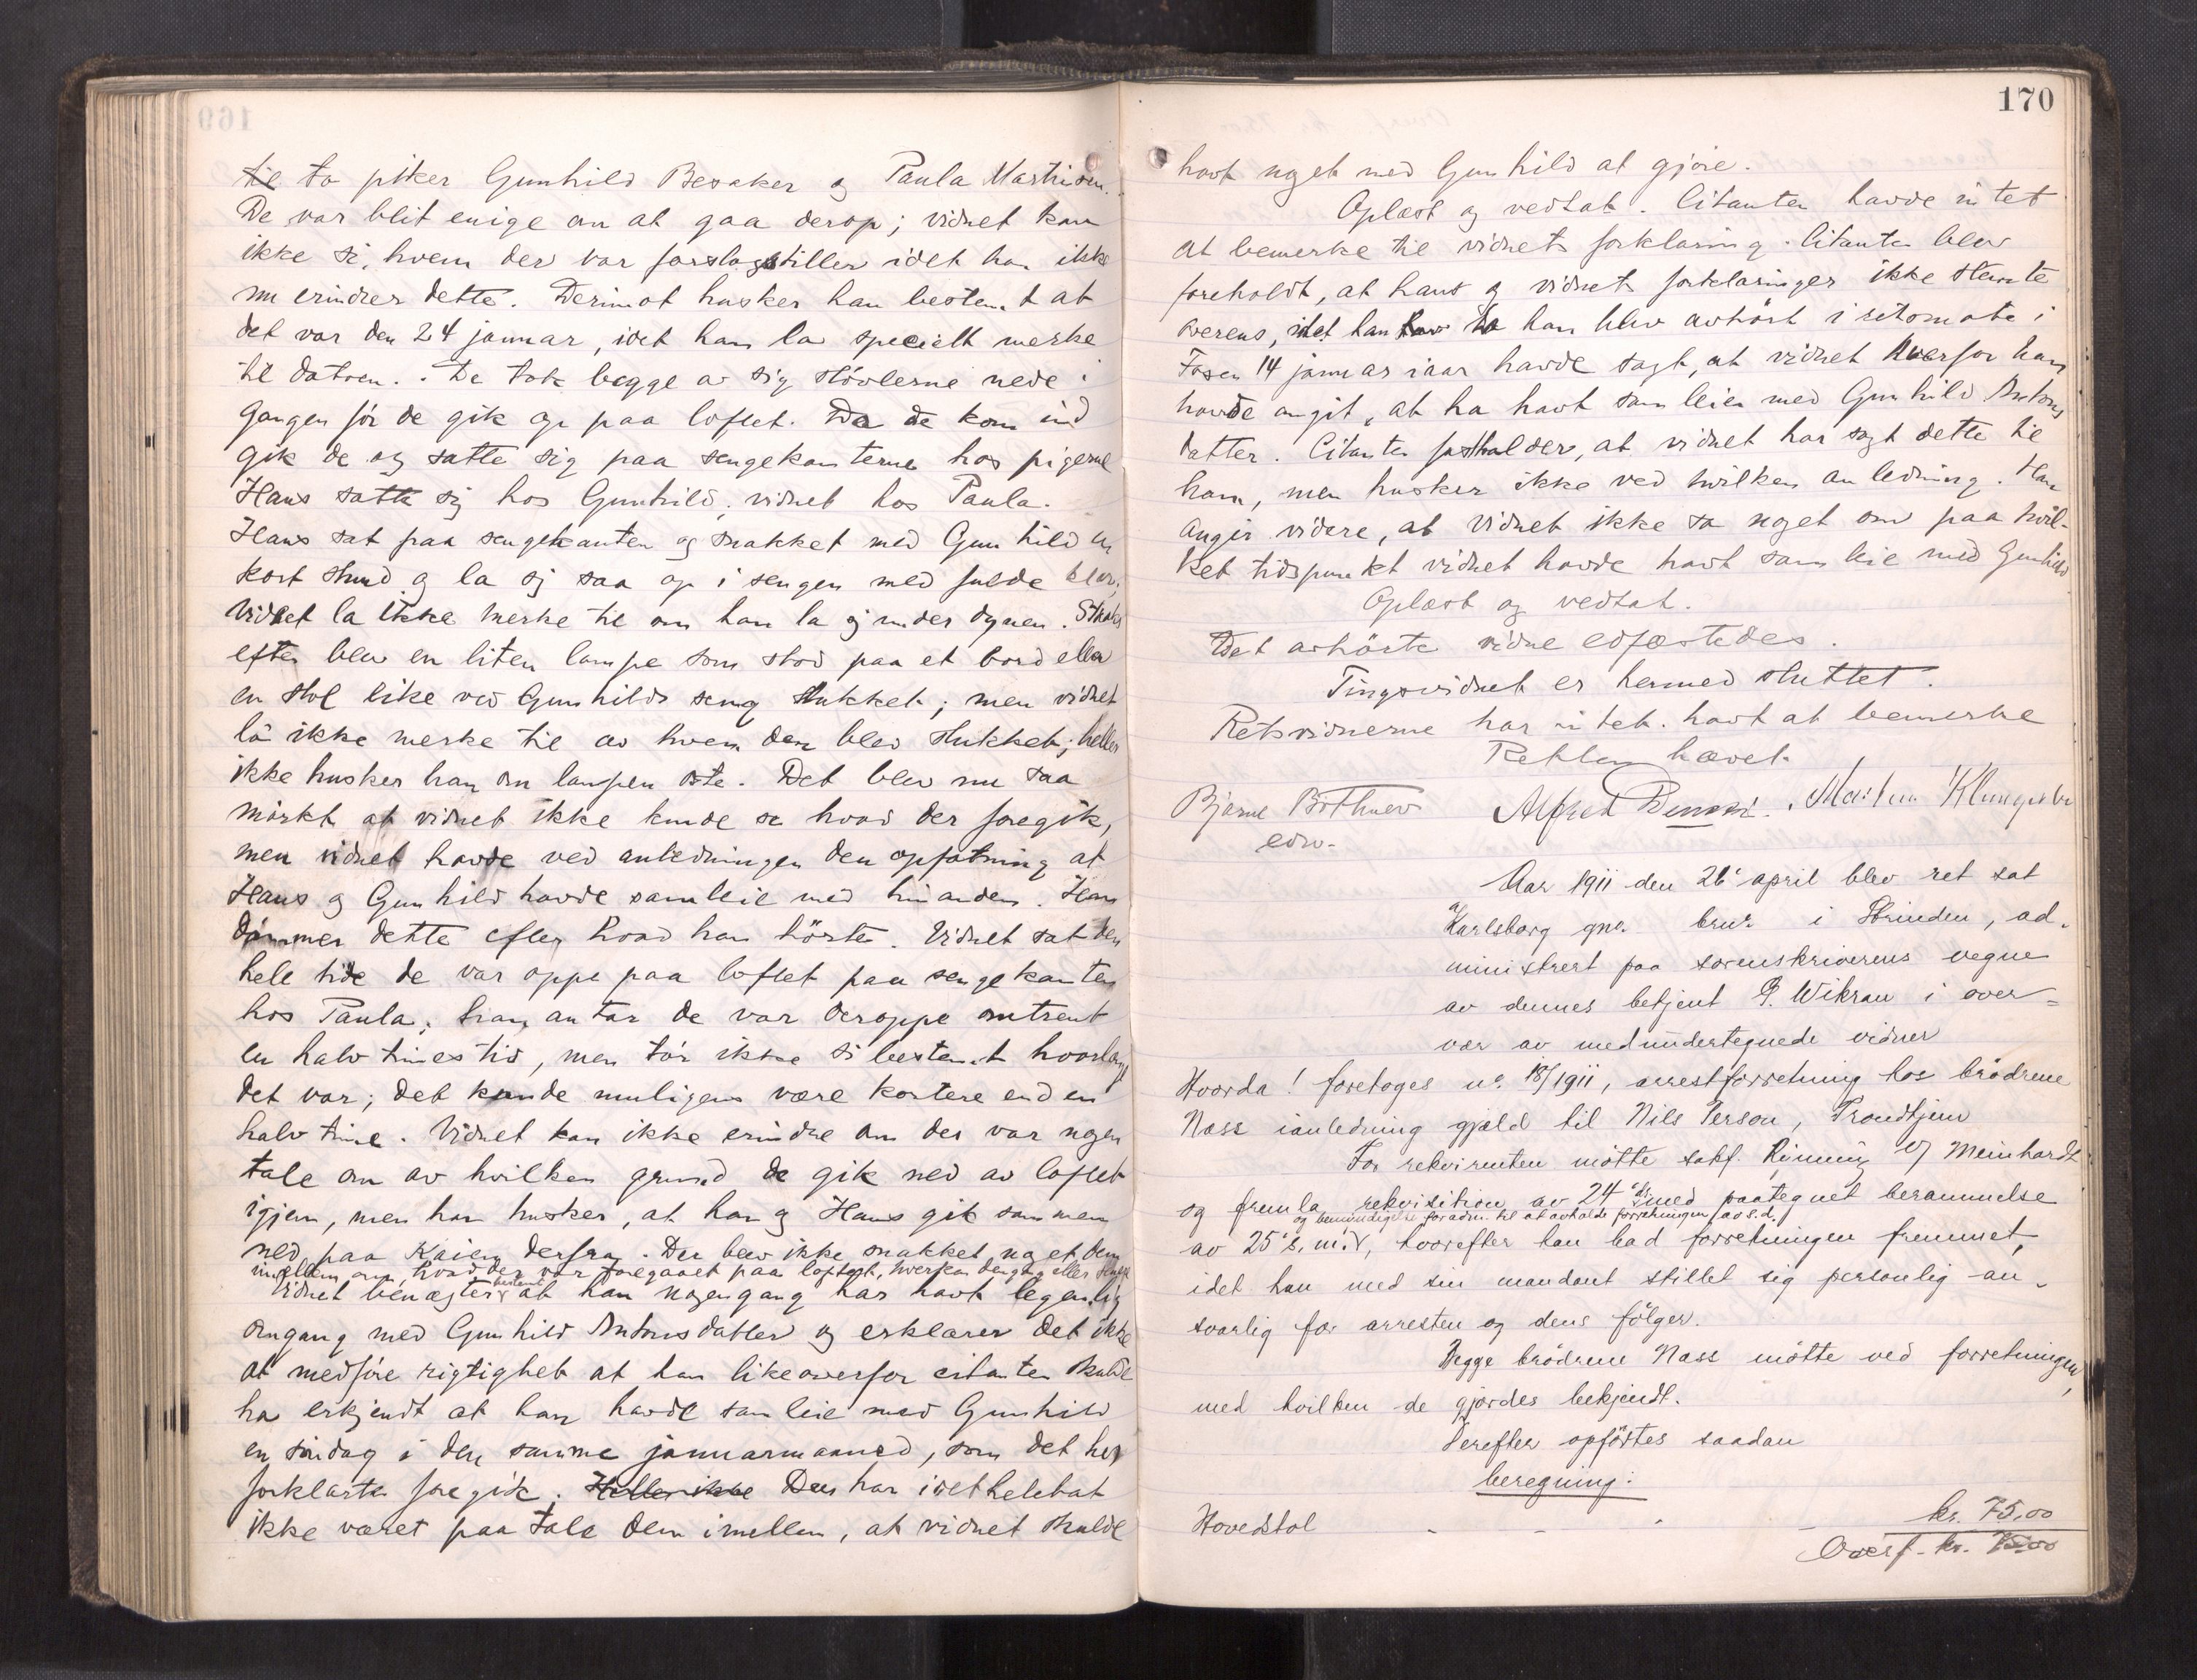 til to piker Gunhild Besaker og Paula Martinsen.
De var blit enige om at gaa derop; vidnet kan
ikke si, hvem der var forslagstiller idet han ikke
nu erindrer dette. Derimot husker han bestemt at
det var den 24 januar, idet han la specielt merke
til datoen. De tok begge av sig støvlerne nede i
gangen før de gik op paa loftet. Da de kom ind
gik de og satte sig paa sengekanterne hos pigerne
Hans satte sig hos Gunhild, vidnet hos Paula.
Hans sat paa sengekanten og snakket med Gunhild en
kort stund og la sig saa op i sengen med fulde klær;
vidnet la ikke merke til om han la sig under dynen. Straks
efter blev en liten lampe som stod paa et bord eller
en stol like ved Gunhilds seng slukket; men vidnet
la ikke merke til av hvem den blev slukket; heller
ikke husker han om lampen oste. Det blev nu saa
mørkt at vidnet ikke kunde se hvad der foregik,
men vidnet havde ved anledningen den opfatning at
Hans og Gunhild havde samleie med hinanden. Han
dømmer dette efter hvad han hørte. Vidnet sat den
hele tide de var oppe paa loftet paa sengekanten
hos Paula; han antar de var deroppe omtrent
en halv times tid, men tør ikke si bestemt hvorlang
det var; det kunde muligens være kortere end en
halv time. Vidnet kan ikke erindre om der var nogen
tale om av hvilken grund de gik ned av loftet
igjen, men han husker, at han og Hans gik sammen
ned paa Kaien derfra. Der blev ikke snakket noget dem
imellem om, hvad der var foregaaet paa loftet, hverken dengang eller senere
Vidnet benægter bestemt at han nogengang har havt legemlig
omgang med Gunhild Antonsdatter og erklærer det ikke
at medføre rigtighet at han likeoverfor citanten skulde
ha erkjendt at han havde samleie med Gunhild
en søndag i den samme januarmaaned, som det her
forklarte foregik. Heller ikke Der har idethele tat
ikke været paa tale dem imellem, at vidnet skulde
170
havt noget med Gunhild at gjøre.
Oplæst og vedtat. Citanten havde intet
at bemerke til vidnets forklaring. Citanten blev
foreholdt, at hans og vidnets forklaringer ikke stemte
overens, idet han da han blev avhørt i retsmøte i
Fosen 14 januar iaar havde sagt, at vidnet overfor ham
havde angit, at ha havt samleie med Gunhild Antons
datter. Citanten fastholder, at vidnet har sagt dette til
ham, men husker ikke ved hvilken anledning. Han
angir videre, at vidnet ikke sa noget om paa hvil-
ket tidspunkt vidnet havde havt samleie med Gunhild
Oplæst og vedtat.
Det avhørte vidne edfæstedes.
Tingsvidnet er hermed sluttet.
Retsvidnerne har intet havt at bemerke
Retten hævet.
Bjarne Bothner
edw.
Alfred Martin
Aar 1911 den 26' april blev ret sat
å Karlsborg gne. brne i Strinden, ad-
ministrert paa sorenskriverens vegne
av dennes betjent P. Wikran i over=
vær av medundertegnede vidner
Hvorda! foretoges no. 18/1911, arrestforretning hos brødrene
Næss i anledning gjæld til Nils Person, Trondhjem
For rekvirenten møtte sakf. Rinning v/ Meinhardt
og fremla rekvisition av 24 ds. med paategnet berammelse
og bemyndigelse for adm. til at avholde forretningen av s.d.
av 25' s.m., hvorefter han bad forretningen fremmet,
idet han med sin mandant stillet sig personlig an-
svarlig for arresten og dens følger.
Begge brødrene Næss møtte ved forretningen,
med hvilken de gjordes bekjendt.
Derefter opførtes saadan
beregning:
Hovedstol - - - - kr. 75,00
Overf. kr. 75,00